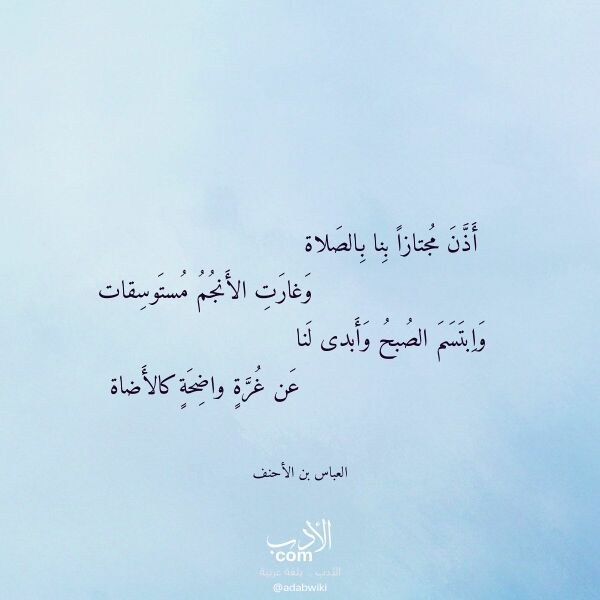 أَذَّنَ مُجتازاً بِنا بِالصَلاة
وَغارَتِ الأَنجُمُ مُستَوسِقات
وَاِبتَسَمَ الصُبحُ وَأَبدى لَنا
عَن غُرَّةٍ واضِحَةٍ كالأَضاة
العباس بن الأحنف
الأدب
com
الأدب .. بلغة عربية
@adabwiki